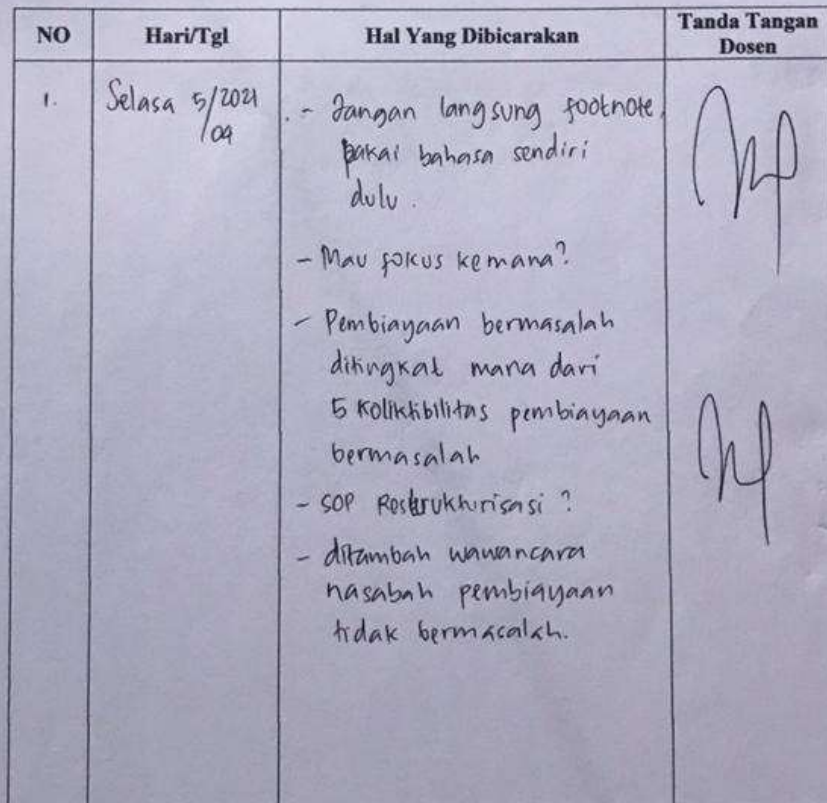 NO Hari/Tgl Hal Yang Dibicarakan Tanda Tangan
Dosen
1. Selasa 5/2021 - Jangan langsung footnote,
/04 pakai bahasa sendiri
dulu.
- Mau fokus kemana?
- Pembiayaan bermasalah
ditingkat mana dari
5 Koliktibilitas pembiayaan
bermasalah
- SOP Restrukturisasi?
- ditambah wawancara
nasabah pembiayaan
tidak bermasalah.